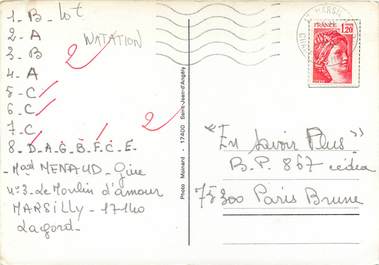 1 - B - lot
2 - A
NATATION
3 - B
2
4 - A
5 - C
6 - C
7 - C
8 - D - A - G - B - F - C - E -
2
- Mad MENAUD - Gine
n°3 - Le Moulin d'amour
MARSILLY - 17140
Lagord -
Photo Moinard - 17400 Saint-Jean-d'Angély
MARSIL
RÉPUBLIQUE FRANÇAISE
1,20
"En Savoir Plus"
B.P. 867 cédex
75300 Paris Brune